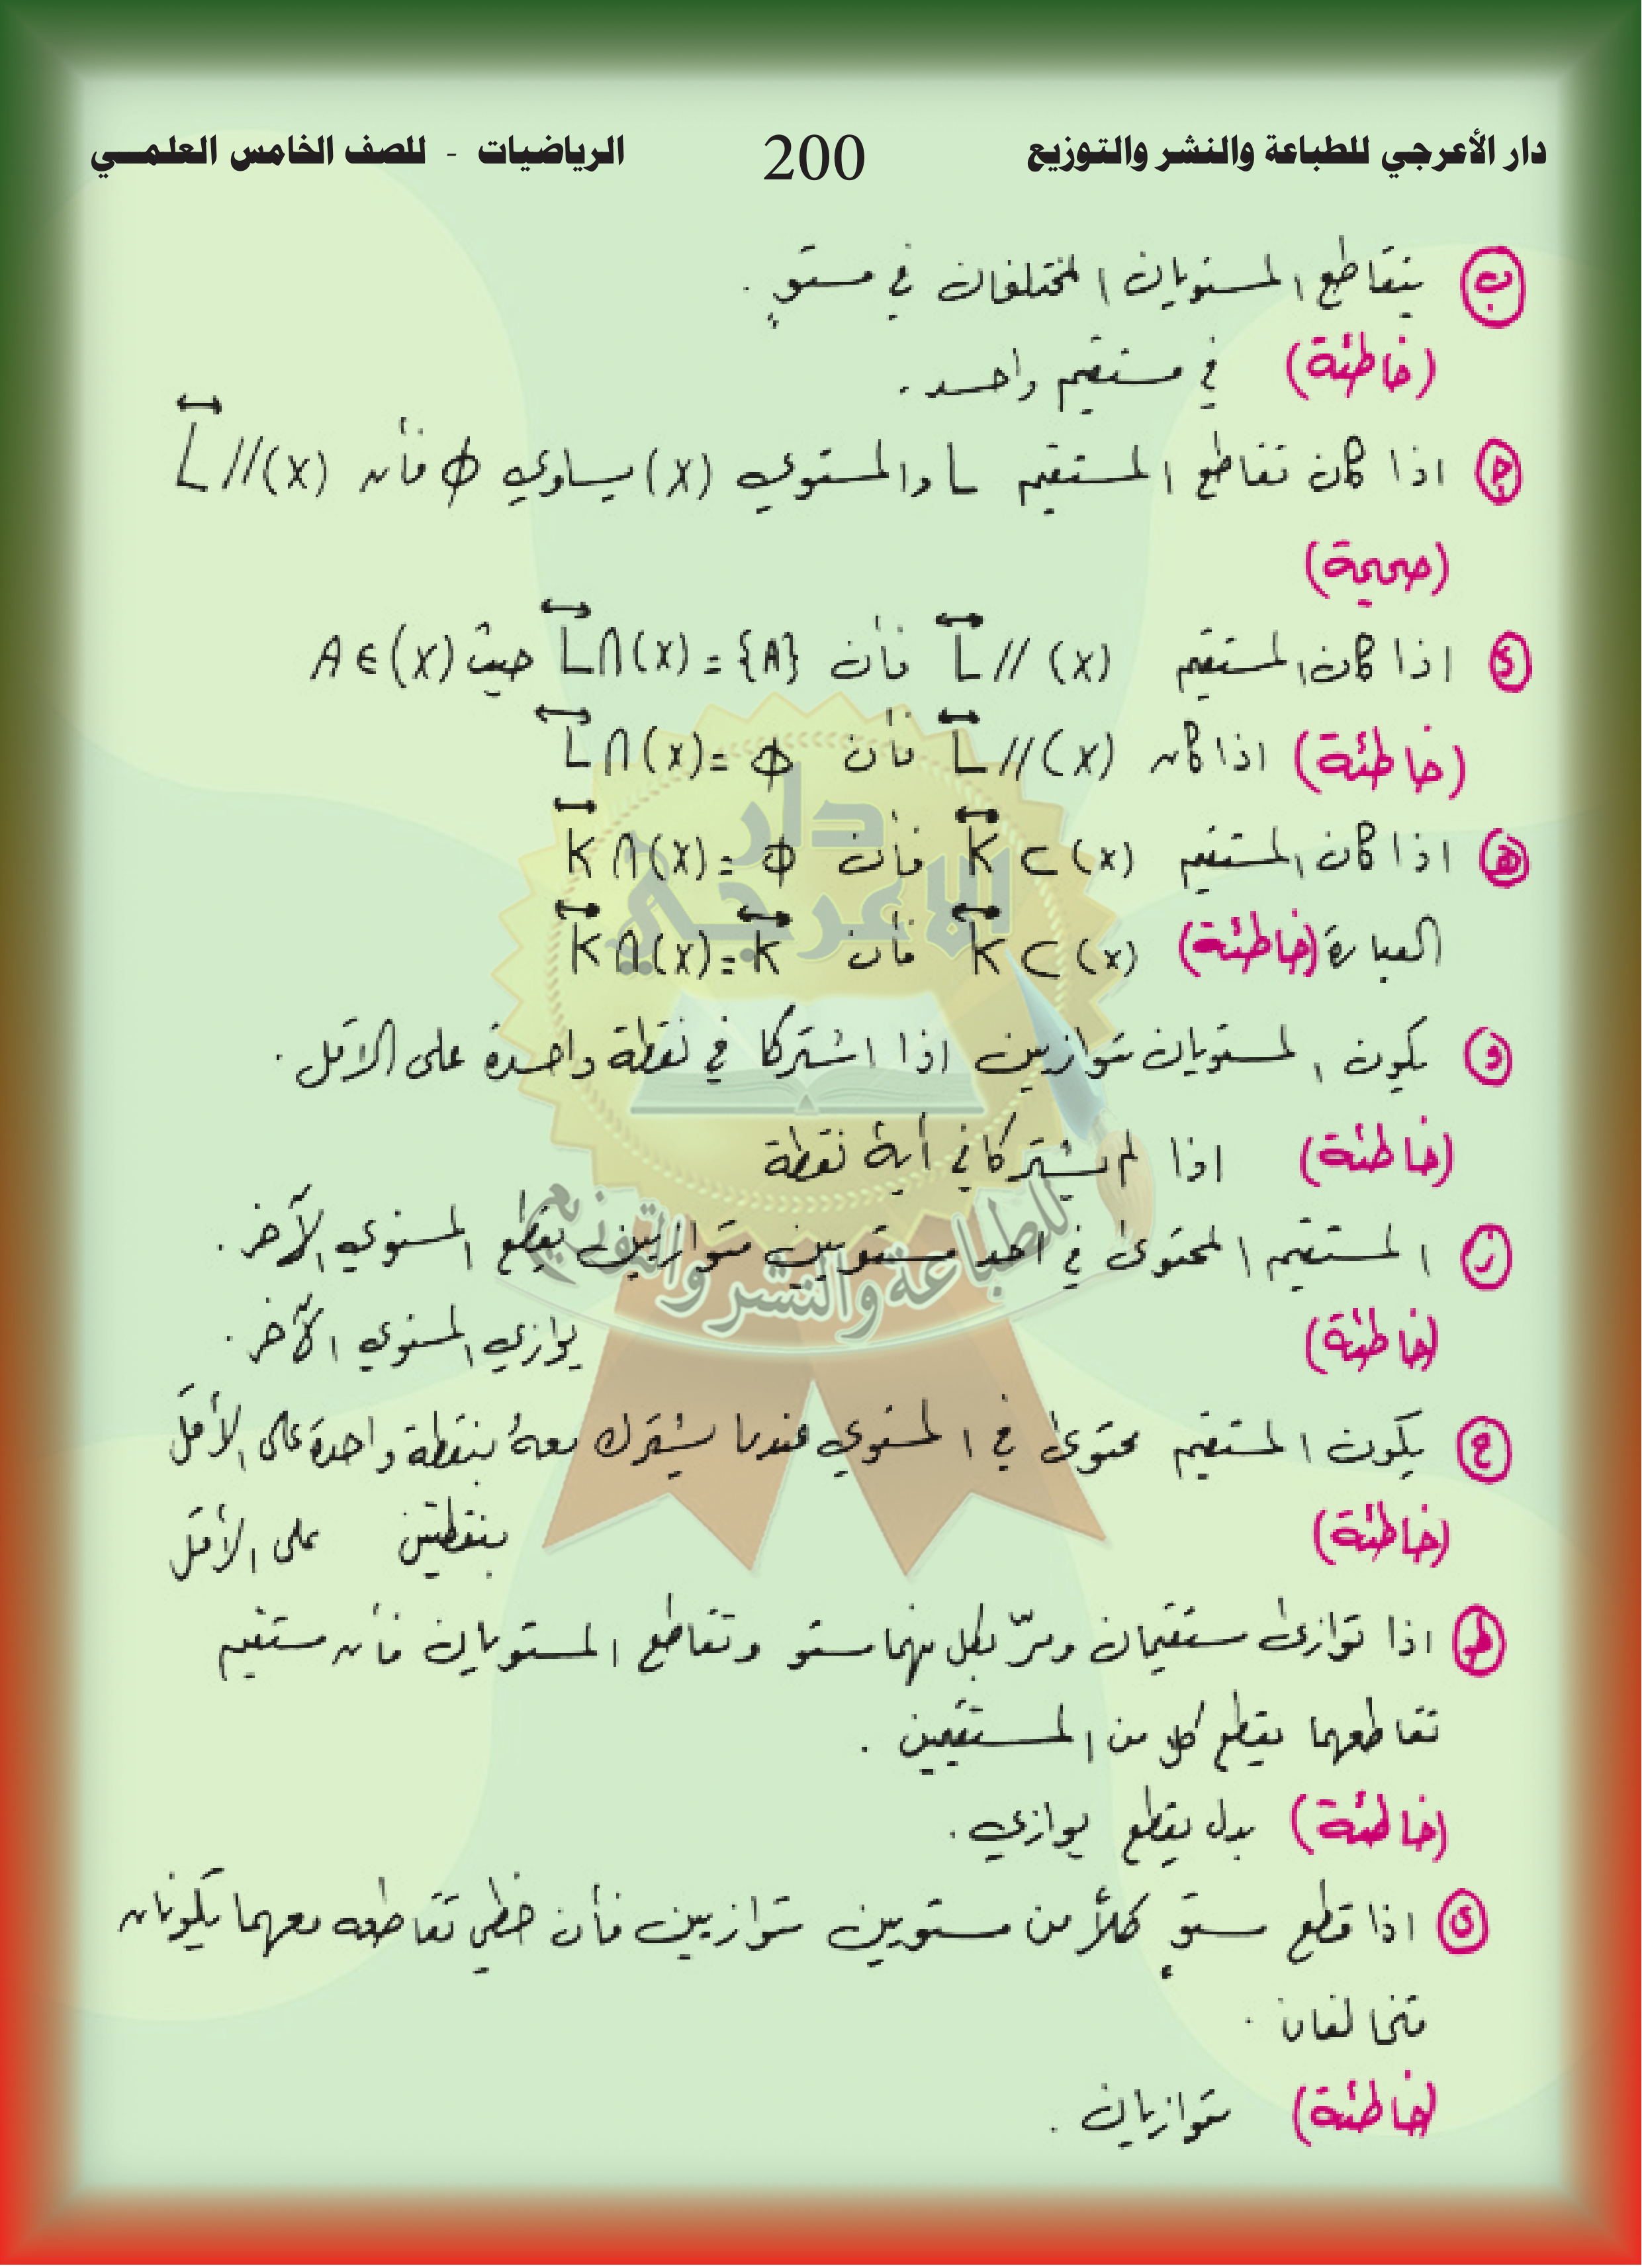 دار الأعرجي للطباعة والنشر والتوزيع 200 الرياضيات - للصف الخامس العلمـــي
ب يتقاطع المستويان المختلفان في مستوٍ .
(خاطئة) في مستقيم واحد .
ج اذا كان تقاطع المستقيم L والمستوي (X) يساوي ϕ فأن L⃡ //(X)
(صحيحة)
د اذا كان المستقيم L⃡ // (X) فأن L⃡ ∩(X) = {A} حيث A∈(X)
(خاطئة) اذا كان L⃡ //(X) فأن L⃡ ∩(X) = ϕ
هـ اذا كان المستقيم K⃡ ⊂ (X) فأن K⃡ ∩(X) = ϕ
العبارة (خاطئة) K⃡ ⊂ (X) فأن K⃡ ∩(X) = K⃡
و يكون المستويان متوازيين اذا اشتركا في نقطة واحدة على الاقل .
(خاطئة) اذا لم يشتركا في أية نقطة
ز المستقيم المحتوى في احد مستويين متوازيين يقطع المستوي الآخر .
(خاطئة) يوازي المستوي الآخر .
ح يكون المستقيم محتوى في المستوي عندما يشترك معهُ بنقطة واحدة على الأقل
(خاطئة) بنقطتين على الأقل
ط اذا توازى مستقيمان ومرّ بكل منهما مستو وتقاطع المستويان فأن مستقيم
تقاطعهما يقطع كل من المستقيمين .
(خاطئة) بدل يقطع يوازي .
ي اذا قطع مستوٍ كلاً من مستويين متوازيين فأن خطي تقاطعه معهما يكونان
متخالفان .
(خاطئة) متوازيان .
دار
الاعرجي
للطباعة والنشر والتوزيع